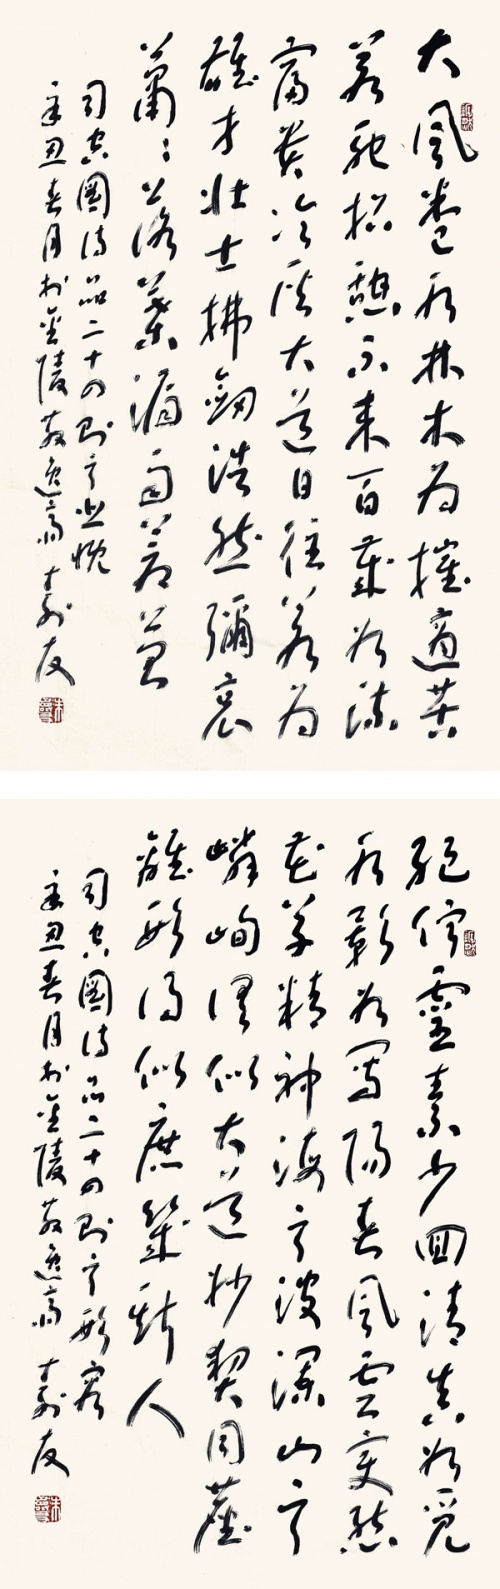 大風卷水林木為摧適苦
若死招憩不來百歲如流
富貴冷灰大道日往若為
雄才壯士拂劍浩然彌哀
蕭蕭落葉漏雨蒼苔
司空圖詩品二十四則之悲慨
辛丑春月於金陵散逸齋 壽友
絕佇靈素少回清真如覓
水影如寫陽春風雲變態
花草精神海之波瀾山之
嶙峋俱似大道妙契同塵
離形得似庶幾斯人
司空圖詩品二十四則之形容
辛丑春月於金陵散逸齋 壽友